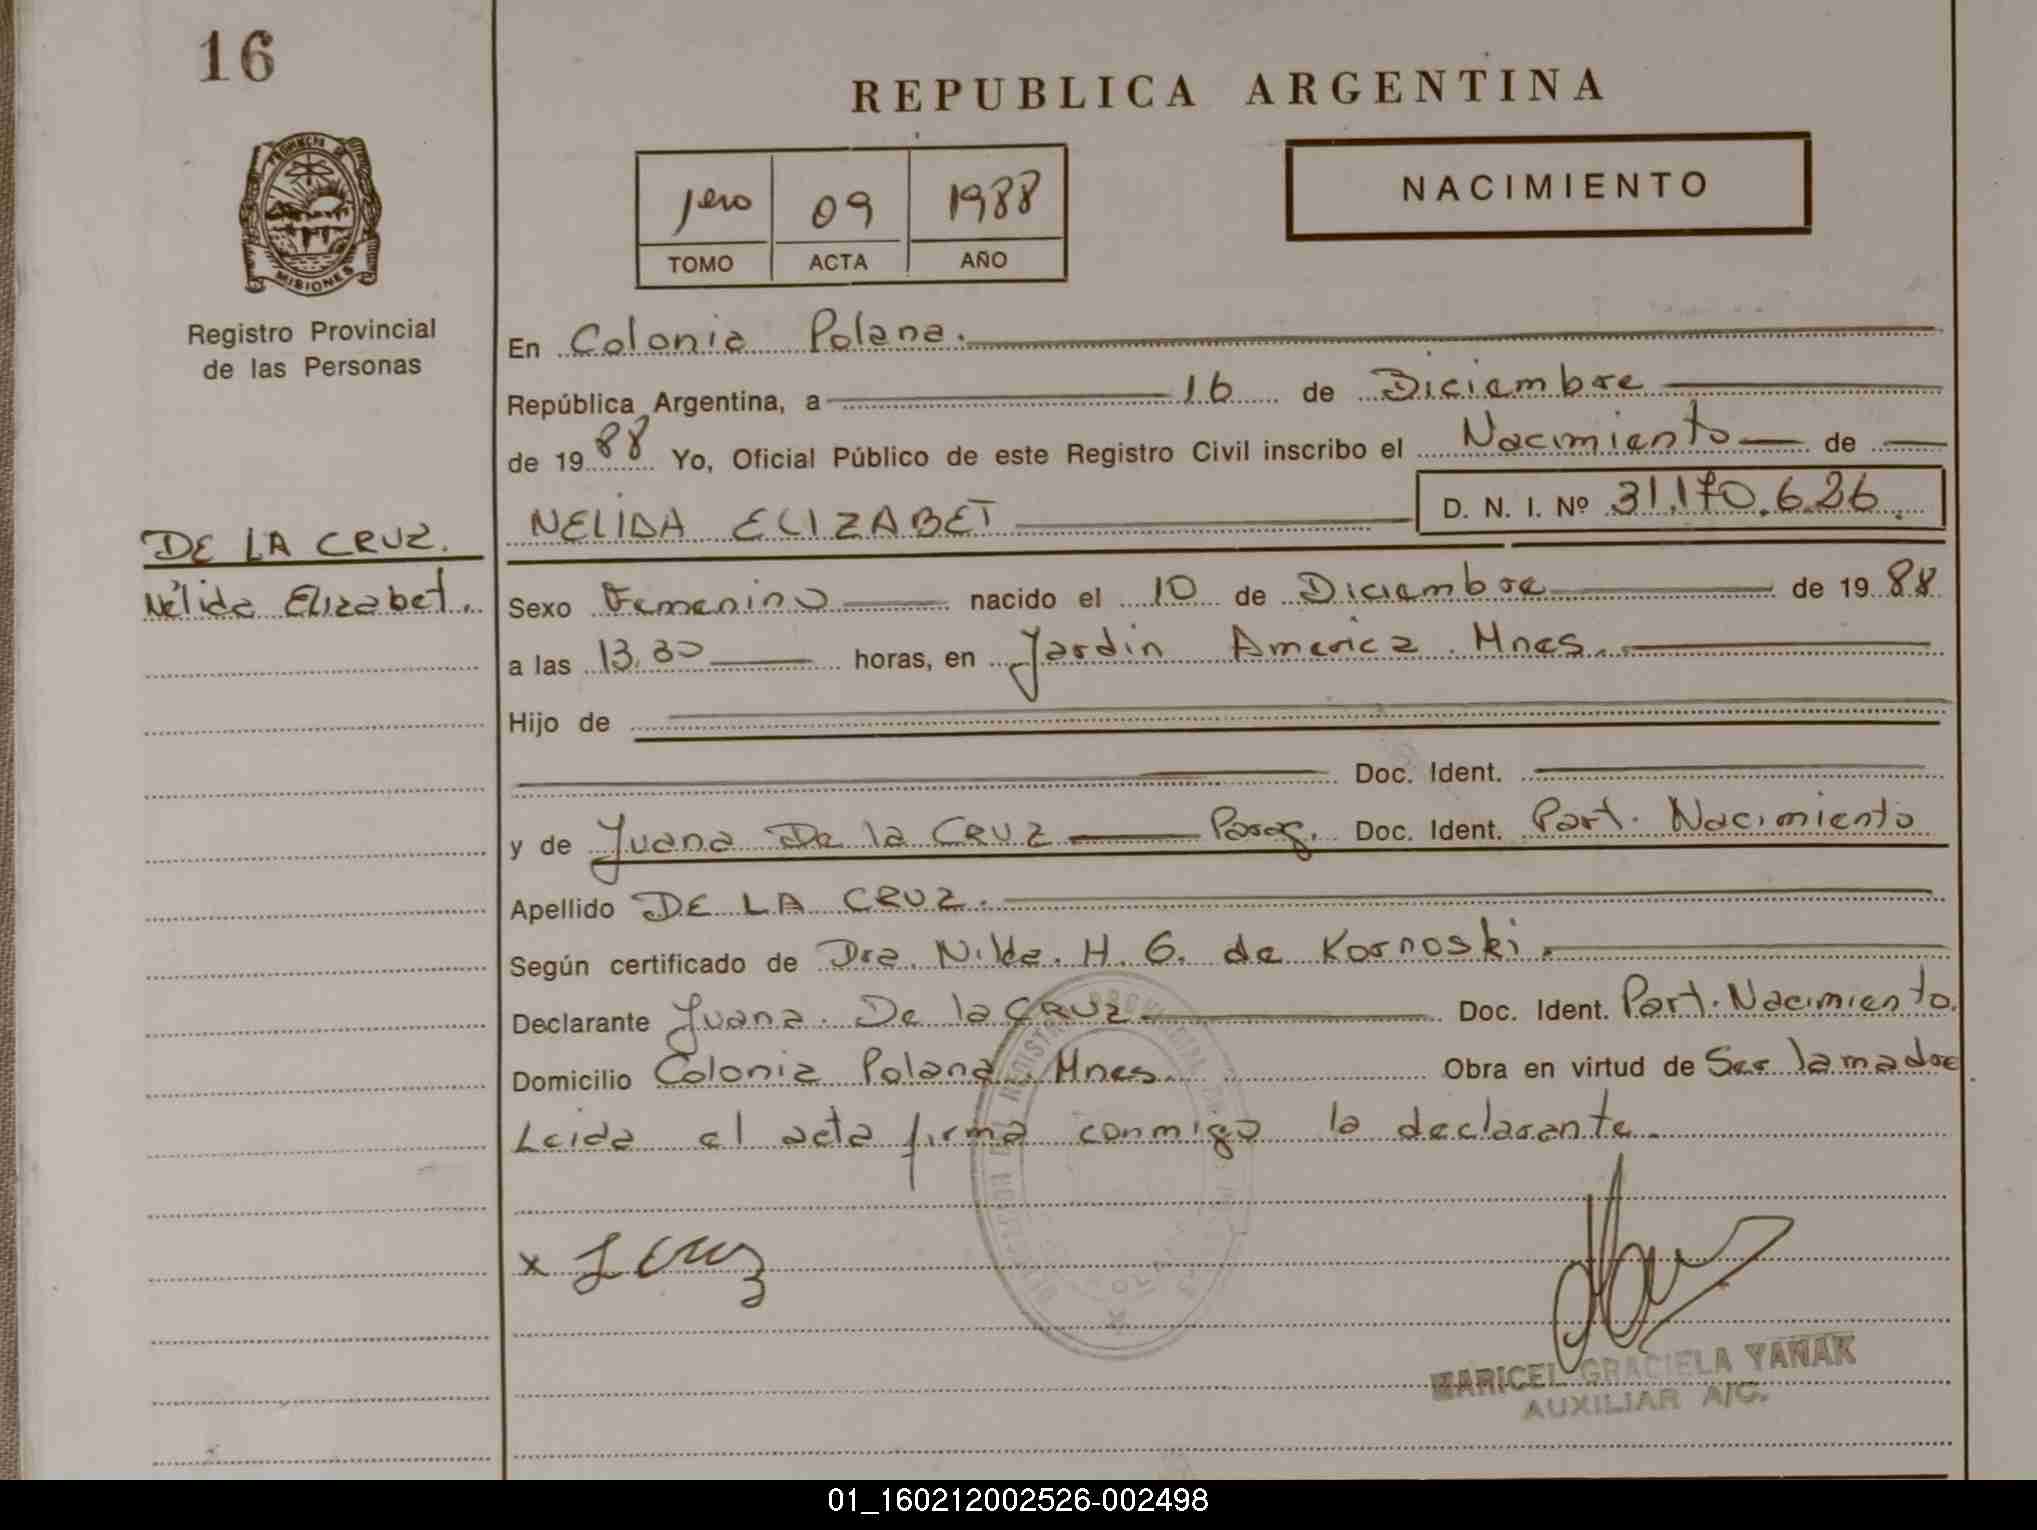 16
REPUBLICA ARGENTINA
PROVINCIA DE
MISIONES
Registro Provincial
de las Personas
1ero 09 1988
TOMO ACTA AÑO
NACIMIENTO
En Colonia Polana.
República Argentina, a 16 de Diciembre
de 1988 Yo, Oficial Público de este Registro Civil inscribo el Nacimiento de
NELIDA ELIZABET D. N. I. Nº 31.170.626.
DE LA CRUZ.
Nélida Elizabet.
Sexo Femenino nacido el 10 de Diciembre de 1988
a las 13.30 horas, en Jardin America. Mnes.
Hijo de
Doc. Ident.
y de Juana De la CRUZ Parag. Doc. Ident. Part. Nacimiento
Apellido DE LA CRUZ.
Según certificado de Dra. Nilda. H. G. de Kornoski.
Declarante Juana. De la CRUZ Doc. Ident. Part. Nacimiento.
Domicilio Colonia Polana Mnes. Obra en virtud de Ser la madre
Leida el acta firma conmigo la declarante.
x J Cruz
MARICEL GRACIELA YANAK
AUXILIAR A/C.
01_160212002526-002498